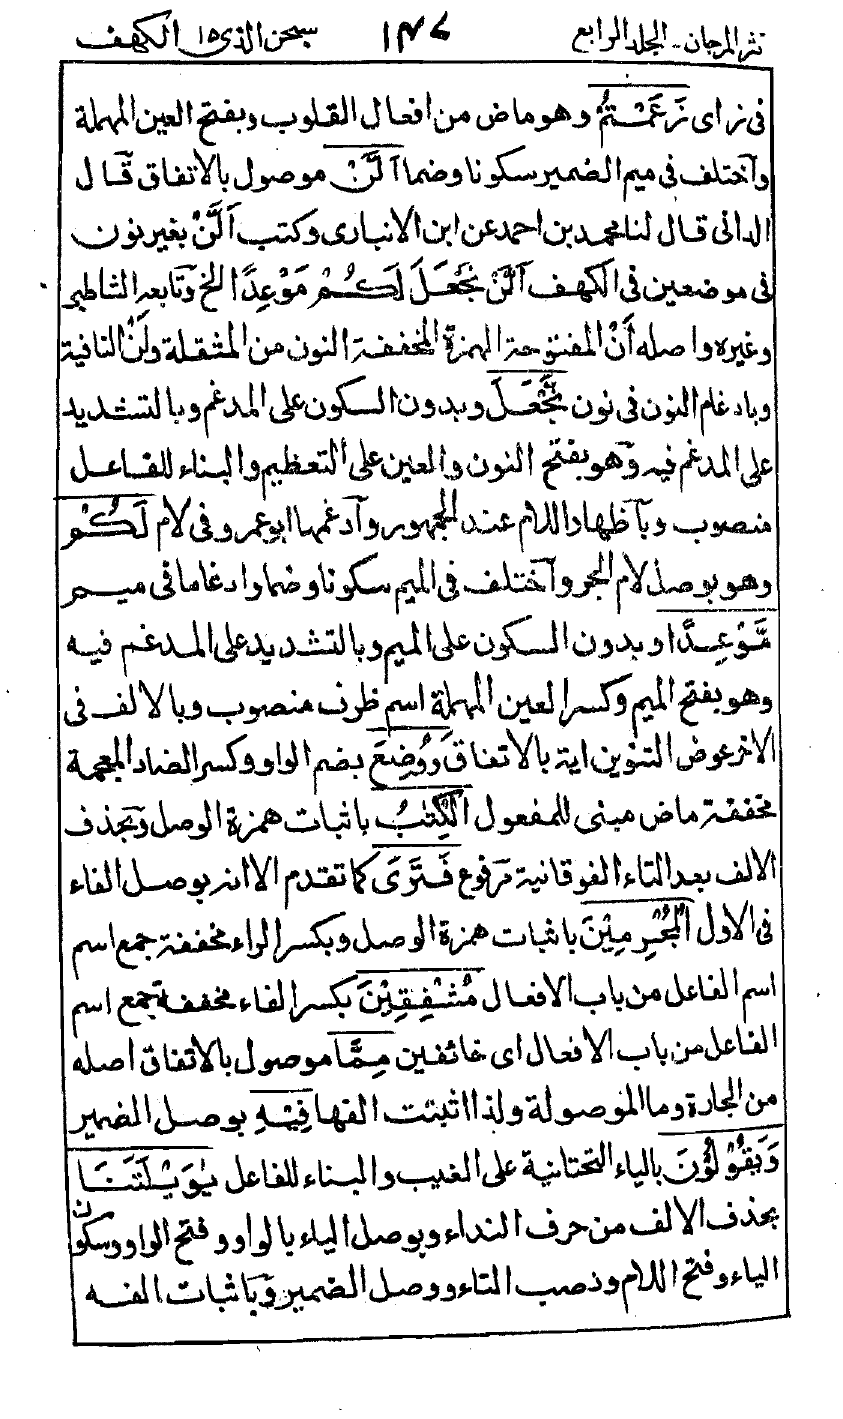 نثر المرجان - المجلد الرابع ١٤٧ سبحن الذى ١٥ الكهف
فى زاى زَعَمْتُمْ وهو ماض من افعال القلوب وبفتح العين المهملة
وآختلف فى ميم الضمير سكونا وضما اَلَّنْ موصول بالاتفاق قال
الدانى قال لنا محمد بن احمد عن ابن الانبارى وكتب اَلَّنْ بغير نون
فى موضعين فى الكهف اَلَّنْ نَجْعَلَ لَكُمْ مَوْعِدًا الخ وتابعه الشاطبى
وغيره واصله اَنْ المفتوحة الهمزة المخففة النون من المثقلة ولَنْ النافية
وبادغام النون فى نون نَّجْعَلَ وبدون السكون على المدغم وبالتشديد
على المدغم فيه وهو بفتح النون والعين على التعظيم والبناء للفاعل
منصوب وبآظهار اللام عند الجمهور وآدغمها ابو عمرو فى لام لَكُمْ
وهو بوصل لام الجر وآختلف فى الميم سكونا وضما وادغاما فى ميم
مَّوْعِدًا وبدون السكون على الميم وبالتشديد على المدغم فيه
وهو بفتح الميم وكسر العين المهملة اسم ظرف منصوب وبالالف فى
الاخر عوض التنوين اية بالاتفاق وَوُضِعَ بضم الواو وكسر الضاد المعجمة
مخففة ماض مبنى للمفعول الْكِتٰبُ باثبات همزة الوصل وبحذف
الالف بعد التاء الفوقانية مرفوع فَتَرَى كما تقدم الا انه بوصل الفاء
فى الاول الْمُجْرِمِيْنَ باثبات همزة الوصل وبكسر الراء مخففة جمع اسم
اسم الفاعل من باب الافعال مُشْفِقِيْنَ بكسر الفاء مخففة جمع اسم
الفاعل من باب الافعال اى خائفين مِمَّا موصول بالاتفاق اصله
من الجارة وما الموصولة ولذا اثبتت الفها فِيْهِ بوصل الضمير
وَيَقُوْلُوْنَ بالياء التحتانية على الغيب والبناء للفاعل يٰوَيْلَتَنَا
بحذف الالف من حرف النداء وبوصل الياء بالواو وفتح الواو وسكون
الياء وفتح اللام ونصب التاء ووصل الضمير وباثبات الفه